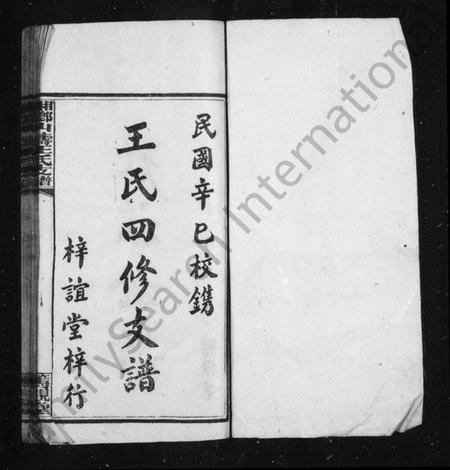 民國辛巳校鐫
王氏四修支譜
梓誼堂梓行
王氏支譜
FamilySearch International